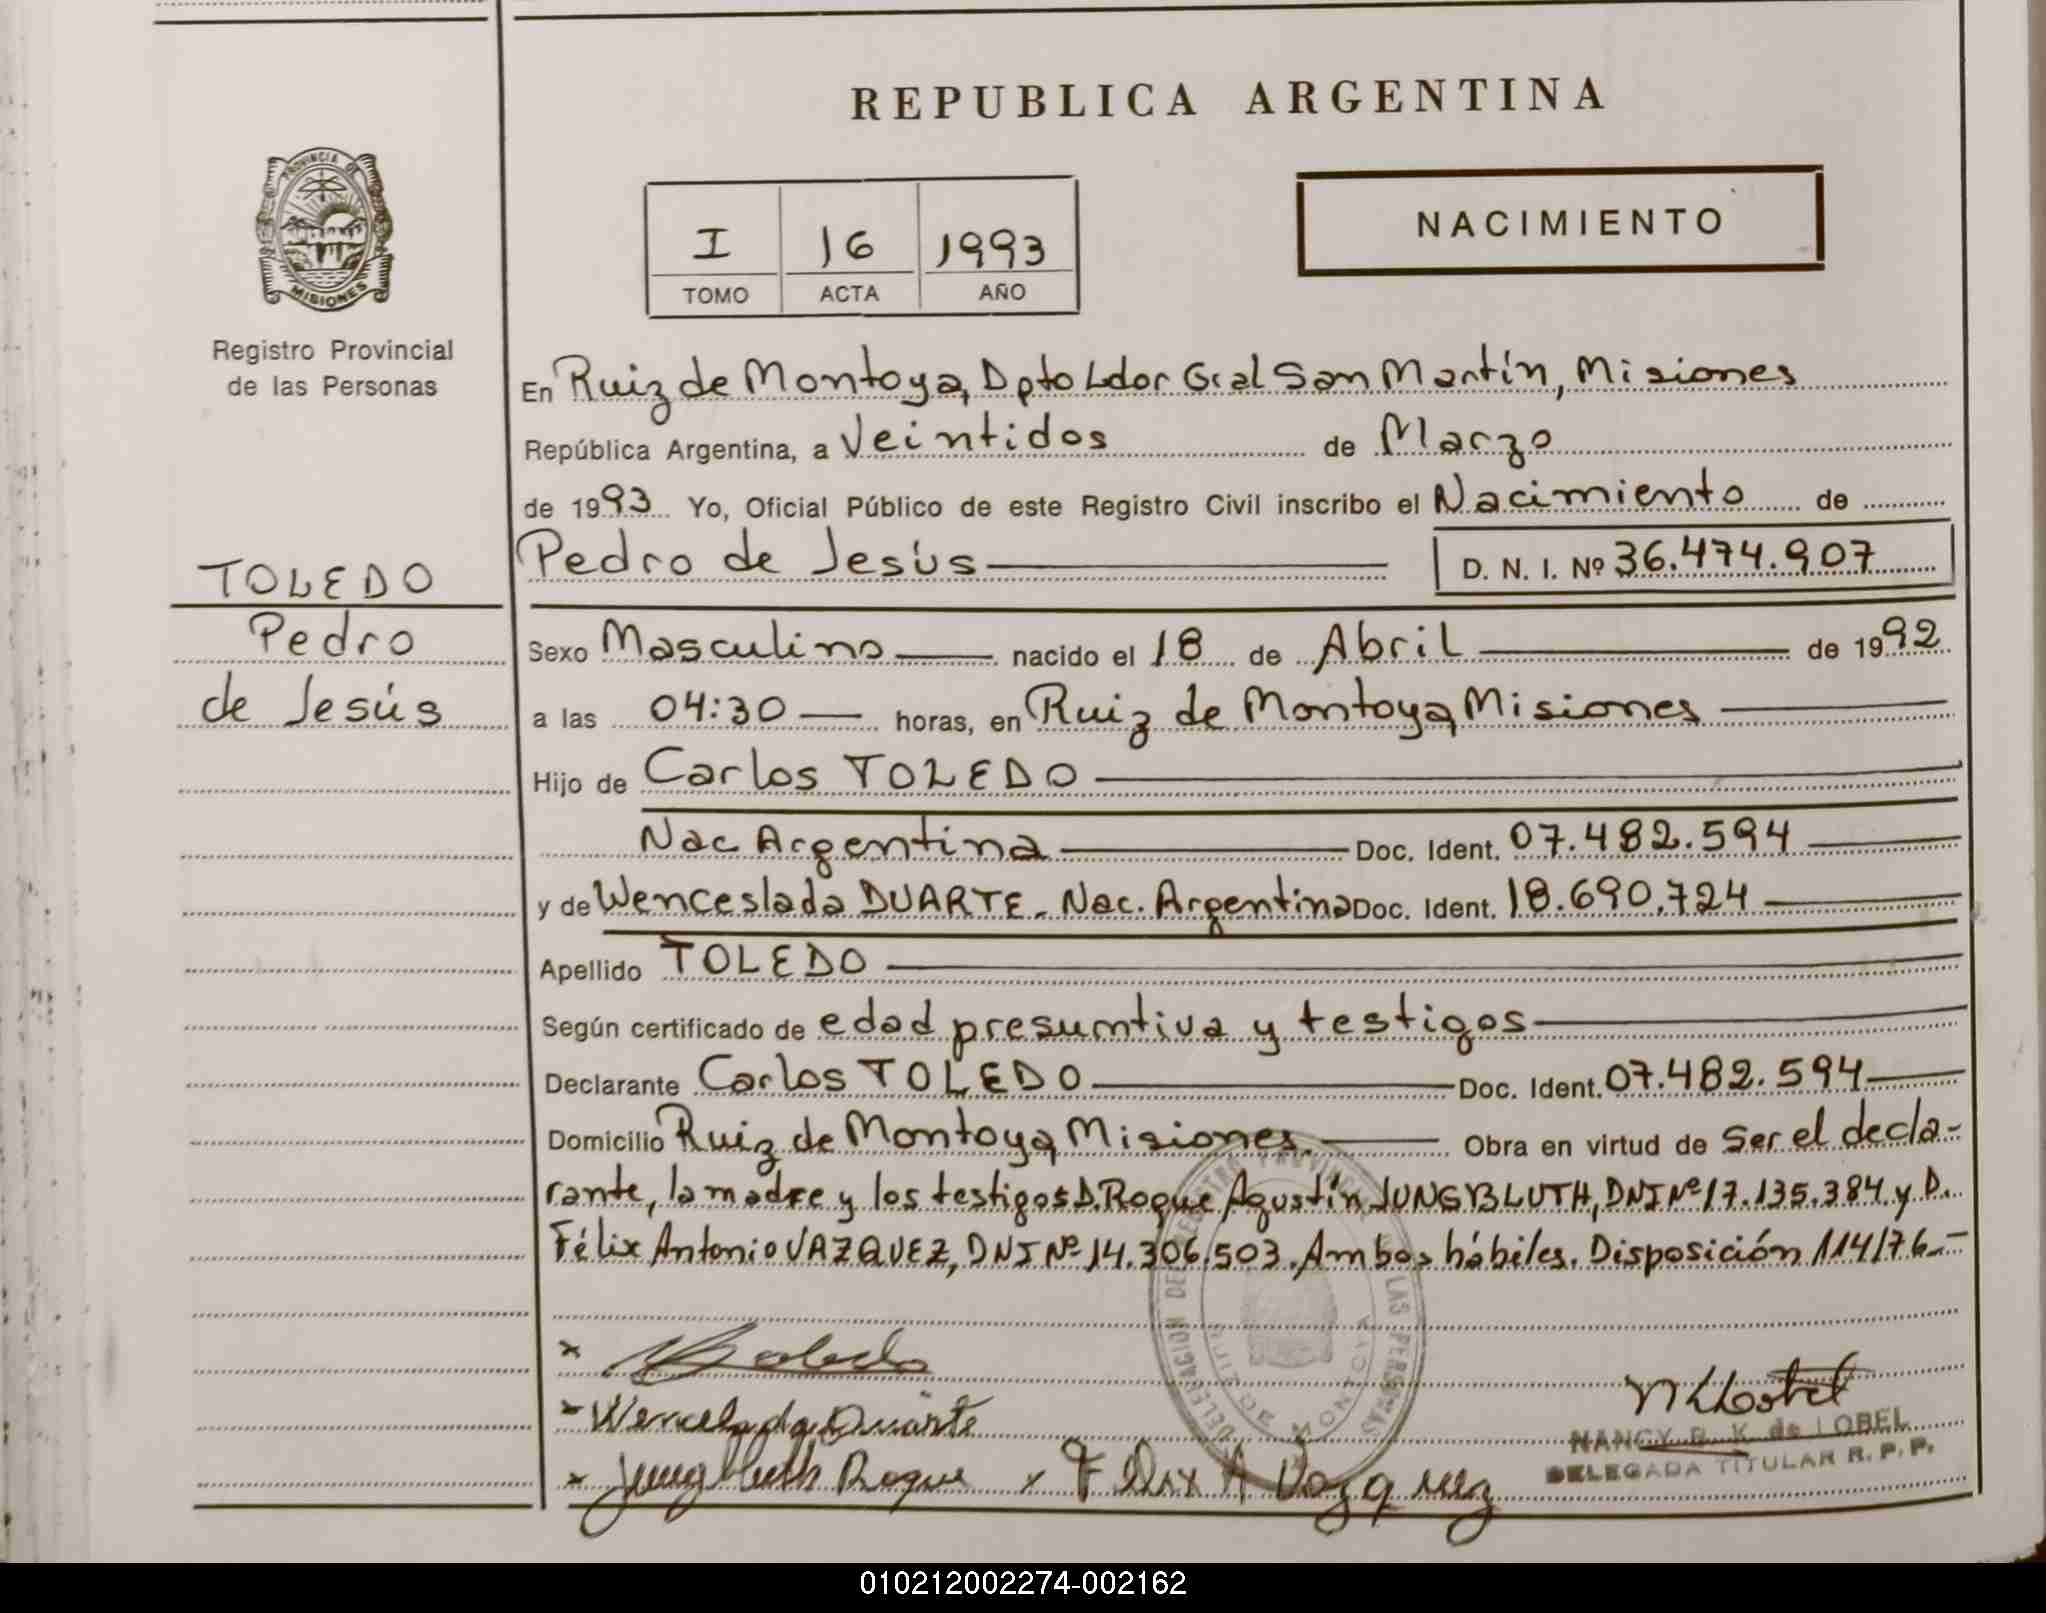 REPUBLICA ARGENTINA
PROVINCIA DE
MISIONES
Registro Provincial
de las Personas
I 16 1993
TOMO ACTA AÑO
NACIMIENTO
En Ruiz de Montoya, Dpto Ldor Gral San Martín, Misiones
República Argentina, a Veintidos de Marzo
de 1993 Yo, Oficial Público de este Registro Civil inscribo el Nacimiento de
Pedro de Jesús D. N. I. Nº 36.474.907
TOLEDO
Pedro
de Jesús
Sexo Masculino nacido el 18 de Abril de 1992
a las 04:30 horas, en Ruiz de Montoya, Misiones
Hijo de Carlos TOLEDO
Nac. Argentina Doc. Ident. 07.482.594
y de Wenceslada DUARTE - Nac. Argentina Doc. Ident. 18.690.724
Apellido TOLEDO
Según certificado de edad presuntiva y testigos
Declarante Carlos TOLEDO Doc. Ident. 07.482.594
Domicilio Ruiz de Montoya, Misiones. Obra en virtud de ser el decla-
rante, la madre y los testigos D. Roque Agustín JUNGBLUTH, DNI Nº 17.135.384 y D.
Félix Antonio VAZQUEZ, DNI Nº 14.306.503. Ambos hábiles. Disposición 114/76.-
DELEGACION DEL REGISTRO PROVINCIAL DE LAS PERSONAS
RUIZ DE MONTOYA
x Toledo
x Wencelada Duarte
x Jungbluth Roque x Felix A Vazquez
NANCY B. K. de LOBEL
DELEGADA TITULAR R. P. P.
010212002274-002162